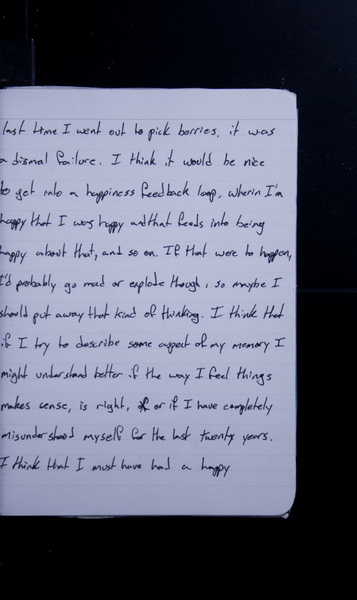 last time I went out to pick berries, it was
a dismal failure. I think it would be nice
to get into a happiness feedback loop, wherin I'm
happy that I was happy and that feeds into being
happy about that, and so on. If that were to happen,
I'd probably go mad or explode though, so maybe I
should put away that kind of thinking. I think that
if I try to describe some aspect of my memory I
might understand better if the way I feel things
makes sense, is right, or if I have completely
misunderstood myself for the last twenty years.
I think that I must have had a happy